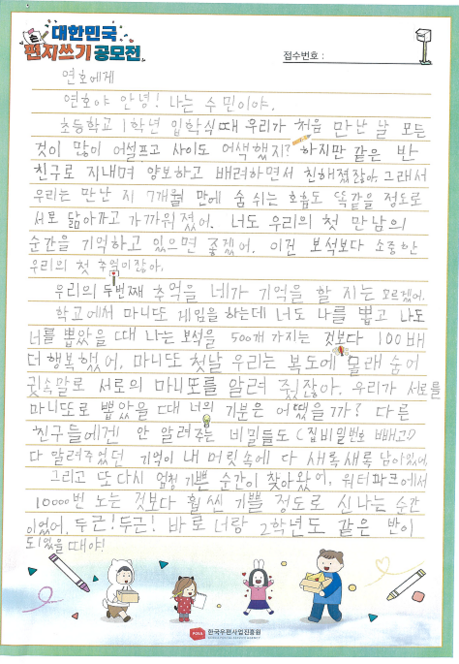 대한민국
편지쓰기 공모전
접수번호 :
연호에게
연호야 안녕! 나는 수민이야.
초등학교 1학년 입학식때 우리가 처음 만난 날 모든
것이 많이 어설프고 사이도 어색했지? 하지만 같은 반
친구로 지내며 양보하고 배려하면서 친해졌잖아. 그래서
우리는 만난 지 7개월 만에 숨 쉬는 호흡도 똑같을 정도로
서로 닮아가고 가까워 졌어. 너도 우리의 첫 만남의
순간을 기억하고 있으면 좋겠어. 이건 보석보다 소중한
우리의 첫 추억이잖아.
우리의 두번째 추억을 네가 기억을 할 지는 모르겠어.
학교에서 마니또 게임을 하는데 너도 나를 뽑고 나도
너를 뽑았을 때 나는 보석을 500개 가지는 것보다 100배
더 행복했어. 마니또 첫날 우리는 복도에 몰래 숨어
귓속말로 서로의 마니또를 알려 줬잖아. 우리가 서로를
마니또로 뽑았을 때 너의 기분은 어땠을까? 다른
친구들에겐 안 알려주는 비밀들도 (집비밀번호 빼고)
다 말려주었던 기억이 내 머릿속에 다 새록새록 남아있어.
그리고 또 다시 엄청 기쁜 순간이 찾아왔어, 워터파크에서
10000번 노는 것보다 훨씬 기쁠 정도로 신나는 순간
이었어. 두근! 두근! 바로 너랑 2학년도 같은 반이
되었을 때야!
한국우편사업진흥원